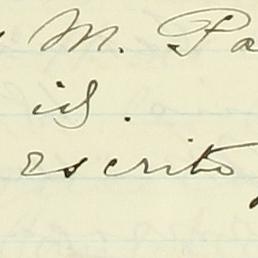 M. Pa
id.
escrito